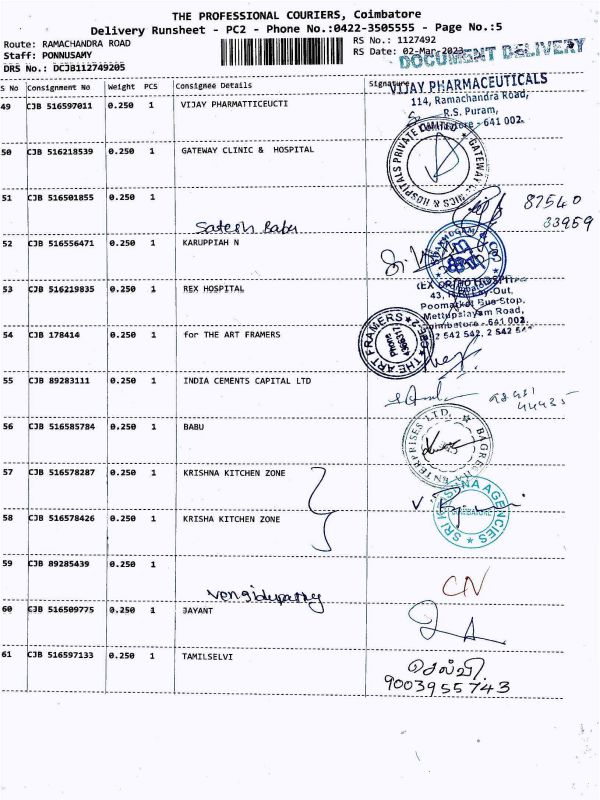 THE PROFESSIONAL COURIERS, Coimbatore
Delivery Runsheet - PC2 - Phone No.:0422-3505555 - Page No.:5
Route: RAMACHANDRA ROAD
RS No.: 1127492
Staff: PONNUSAMY
RS Date: 02-Mar-2023
DRS No.: DCJB112749205
DOCUMENT DELIVERY
S No Consignment No Weight PCS Consignee Details Signature
VIJAY PHARMACEUTICALS
114, Ramachandra Road,
R.S. Puram,
- 641 002.
49 CJB 516597011 0.250 1 VIJAY PHARMATTICEUCTI
50 CJB 516218539 0.250 1 GATEWAY CLINIC & HOSPITAL
51 CJB 516501855 0.250 1
Satesh Babu
87540
33959
52 CJB 516556471 0.250 1 KARUPPIAH N
53 CJB 516219835 0.250 1 REX HOSPITAL
REX ORTHO HOSPITAL
Poomarket Bus Stop,
Mettupalayam Road,
Coimbatore - 641 002.
2 542 542, 2 542
54 CJB 178414 0.250 1 for THE ART FRAMERS
THE ART FRAMERS
Phone
55 CJB 89283111 0.250 1 INDIA CEMENTS CAPITAL LTD
44435
56 CJB 516585784 0.250 1 BABU
ENTERPRISES LTD.
57 CJB 516578287 0.250 1 KRISHNA KITCHEN ZONE
SRI KRISHNA AGENCIES
58 CJB 516578426 0.250 1 KRISHA KITCHEN ZONE
59 CJB 89285439 0.250 1
CN
60 CJB 516509775 0.250 1 JAYANT
61 CJB 516597133 0.250 1 TAMILSELVI
செல்வி.
9003955743